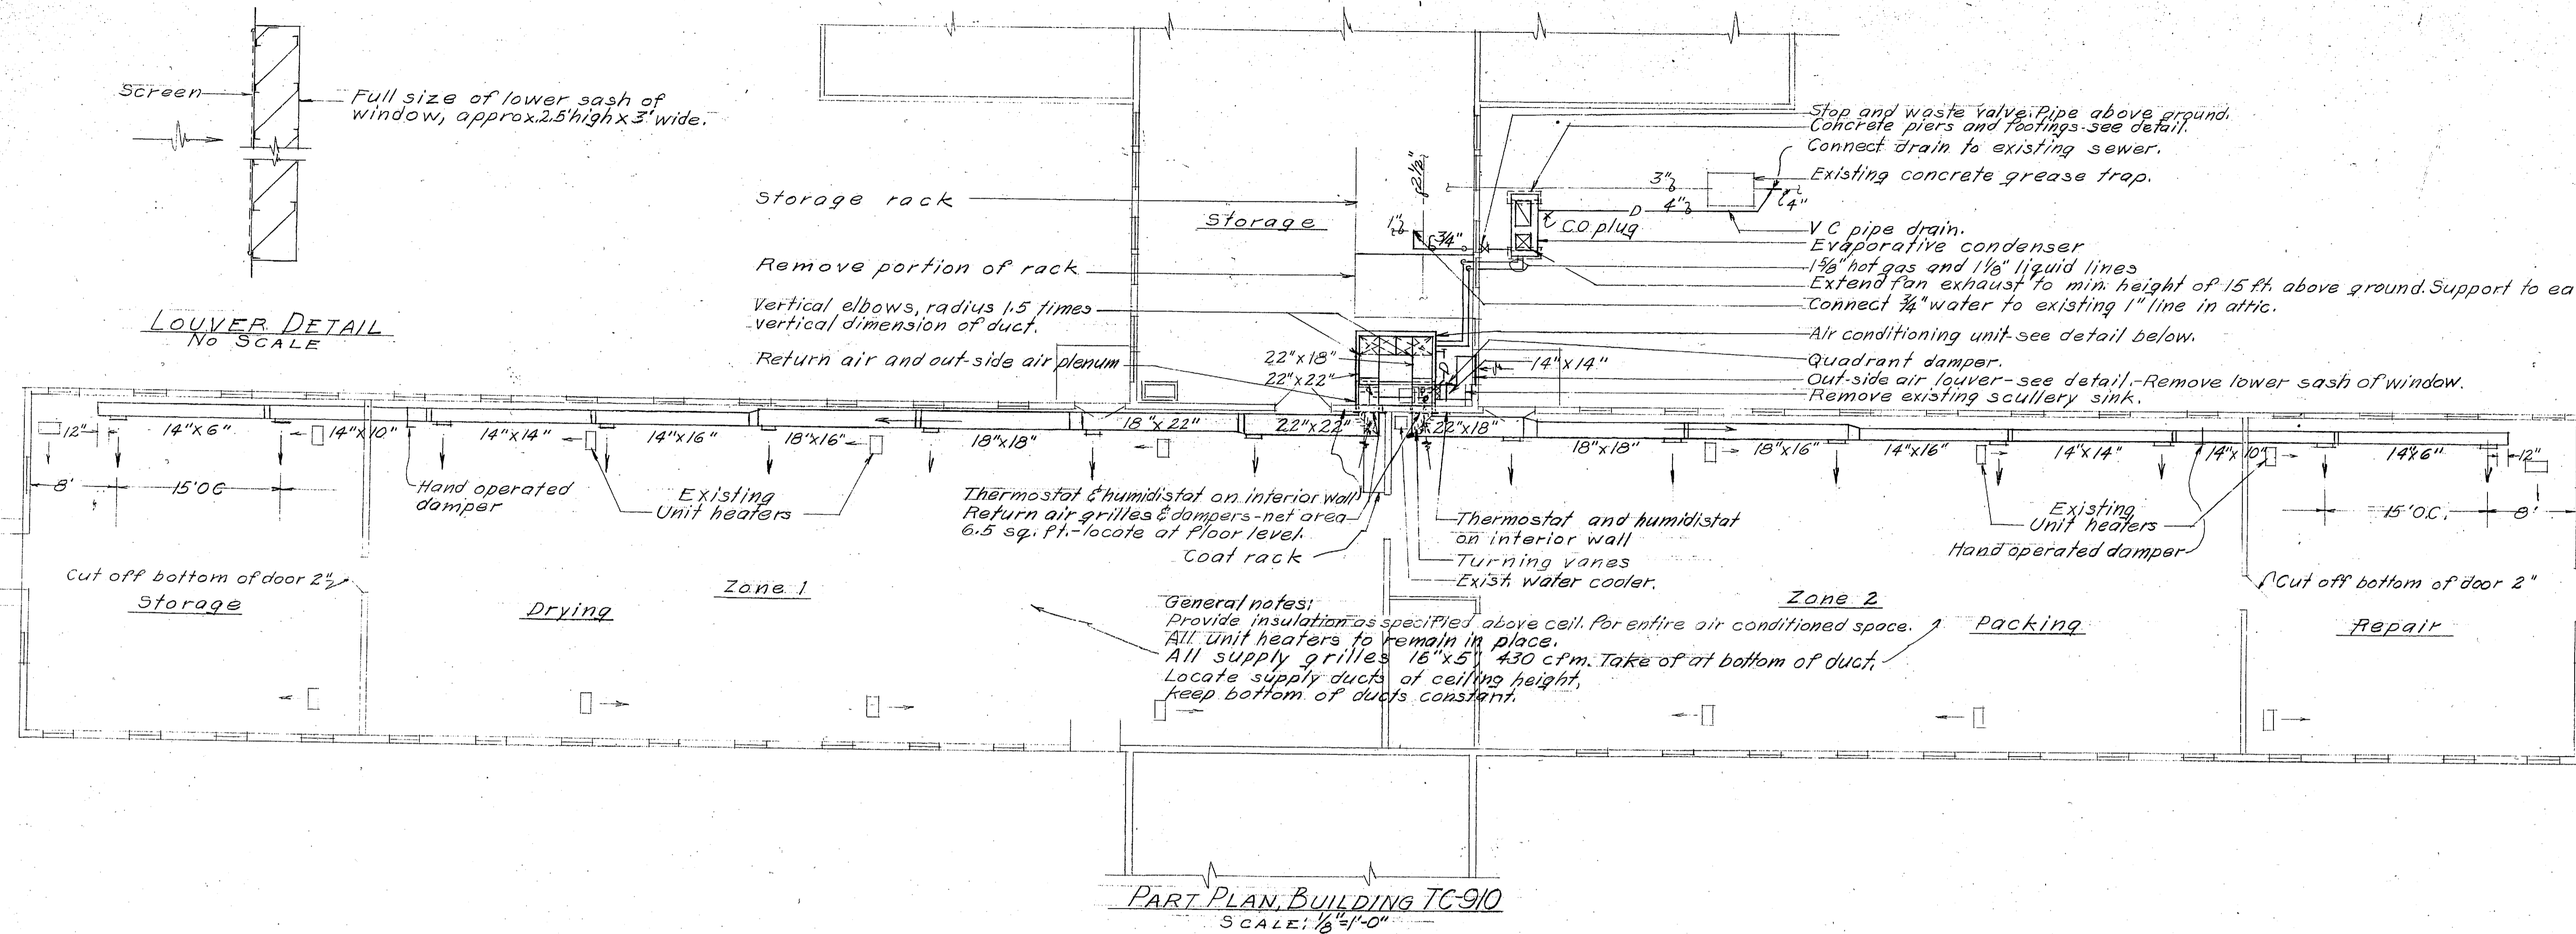 Screen
Full size of lower sash of
window, approx. 2.5' high x 3' wide.
LOUVER DETAIL
NO SCALE
Storage rack
Storage
Remove portion of rack
Vertical elbows, radius 1.5 times
vertical dimension of duct.
Return air and out-side air plenum
2½"
1"
3/4"
3"
4"
D
4"
C.O. plug
Stop and waste valve. Pipe above ground.
Concrete piers and footings-see detail.
Connect drain to existing sewer.
Existing concrete grease trap.
V C pipe drain.
Evaporative condenser
1 5/8" hot gas and 1 1/8" liquid lines
Extend fan exhaust to min. height of 15 ft. above ground. Support to ea
Connect 3/4" water to existing 1" line in attic.
Air conditioning unit-see detail below.
Quadrant damper.
Out-side air louver-see detail.-Remove lower sash of window.
Remove existing scullery sink.
22"x18"
22"x22"
14"x14"
12"
14"x6"
14"x10"
14"x14"
14"x16"
18"x16"
18"x18"
18"x22"
22"x22"
22"x18"
18"x18"
18"x16"
14"x16"
14"x14"
14"x10"
14"x6"
12"
8'
15' O C
Hand operated
damper
Existing
Unit heaters
Thermostat & humidistat on interior wall
Return air grilles & dampers-net area
6.5 sq. ft.-locate at floor level.
Coat rack
Thermostat and humidistat
on interior wall
Turning vanes
Exist. water cooler.
Existing
Unit heaters
Hand operated damper
15' O.C.
8'
Cut off bottom of door 2"
Storage
Drying
Zone 1
General notes:
Provide insulation as specified above ceil. for entire air conditioned space.
All unit heaters to remain in place.
All supply grilles 16"x5", 430 cfm. Take of at bottom of duct.
Locate supply ducts at ceiling height,
keep bottom of ducts constant.
Zone 2
Packing
Cut off bottom of door 2"
Repair
PART PLAN, BUILDING TC-910
SCALE: 1/8"=1'-0"